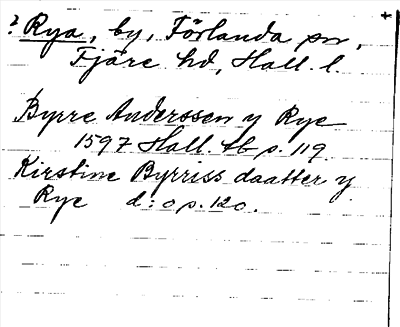 ? Rya, by, Förlanda sn,
Fjäre hd, Hall. l.
Byrre Anderssen y Rye
1597 Hall. tb p. 119
Kirstine Byrriss daatter y
Rye d:o p. 120.